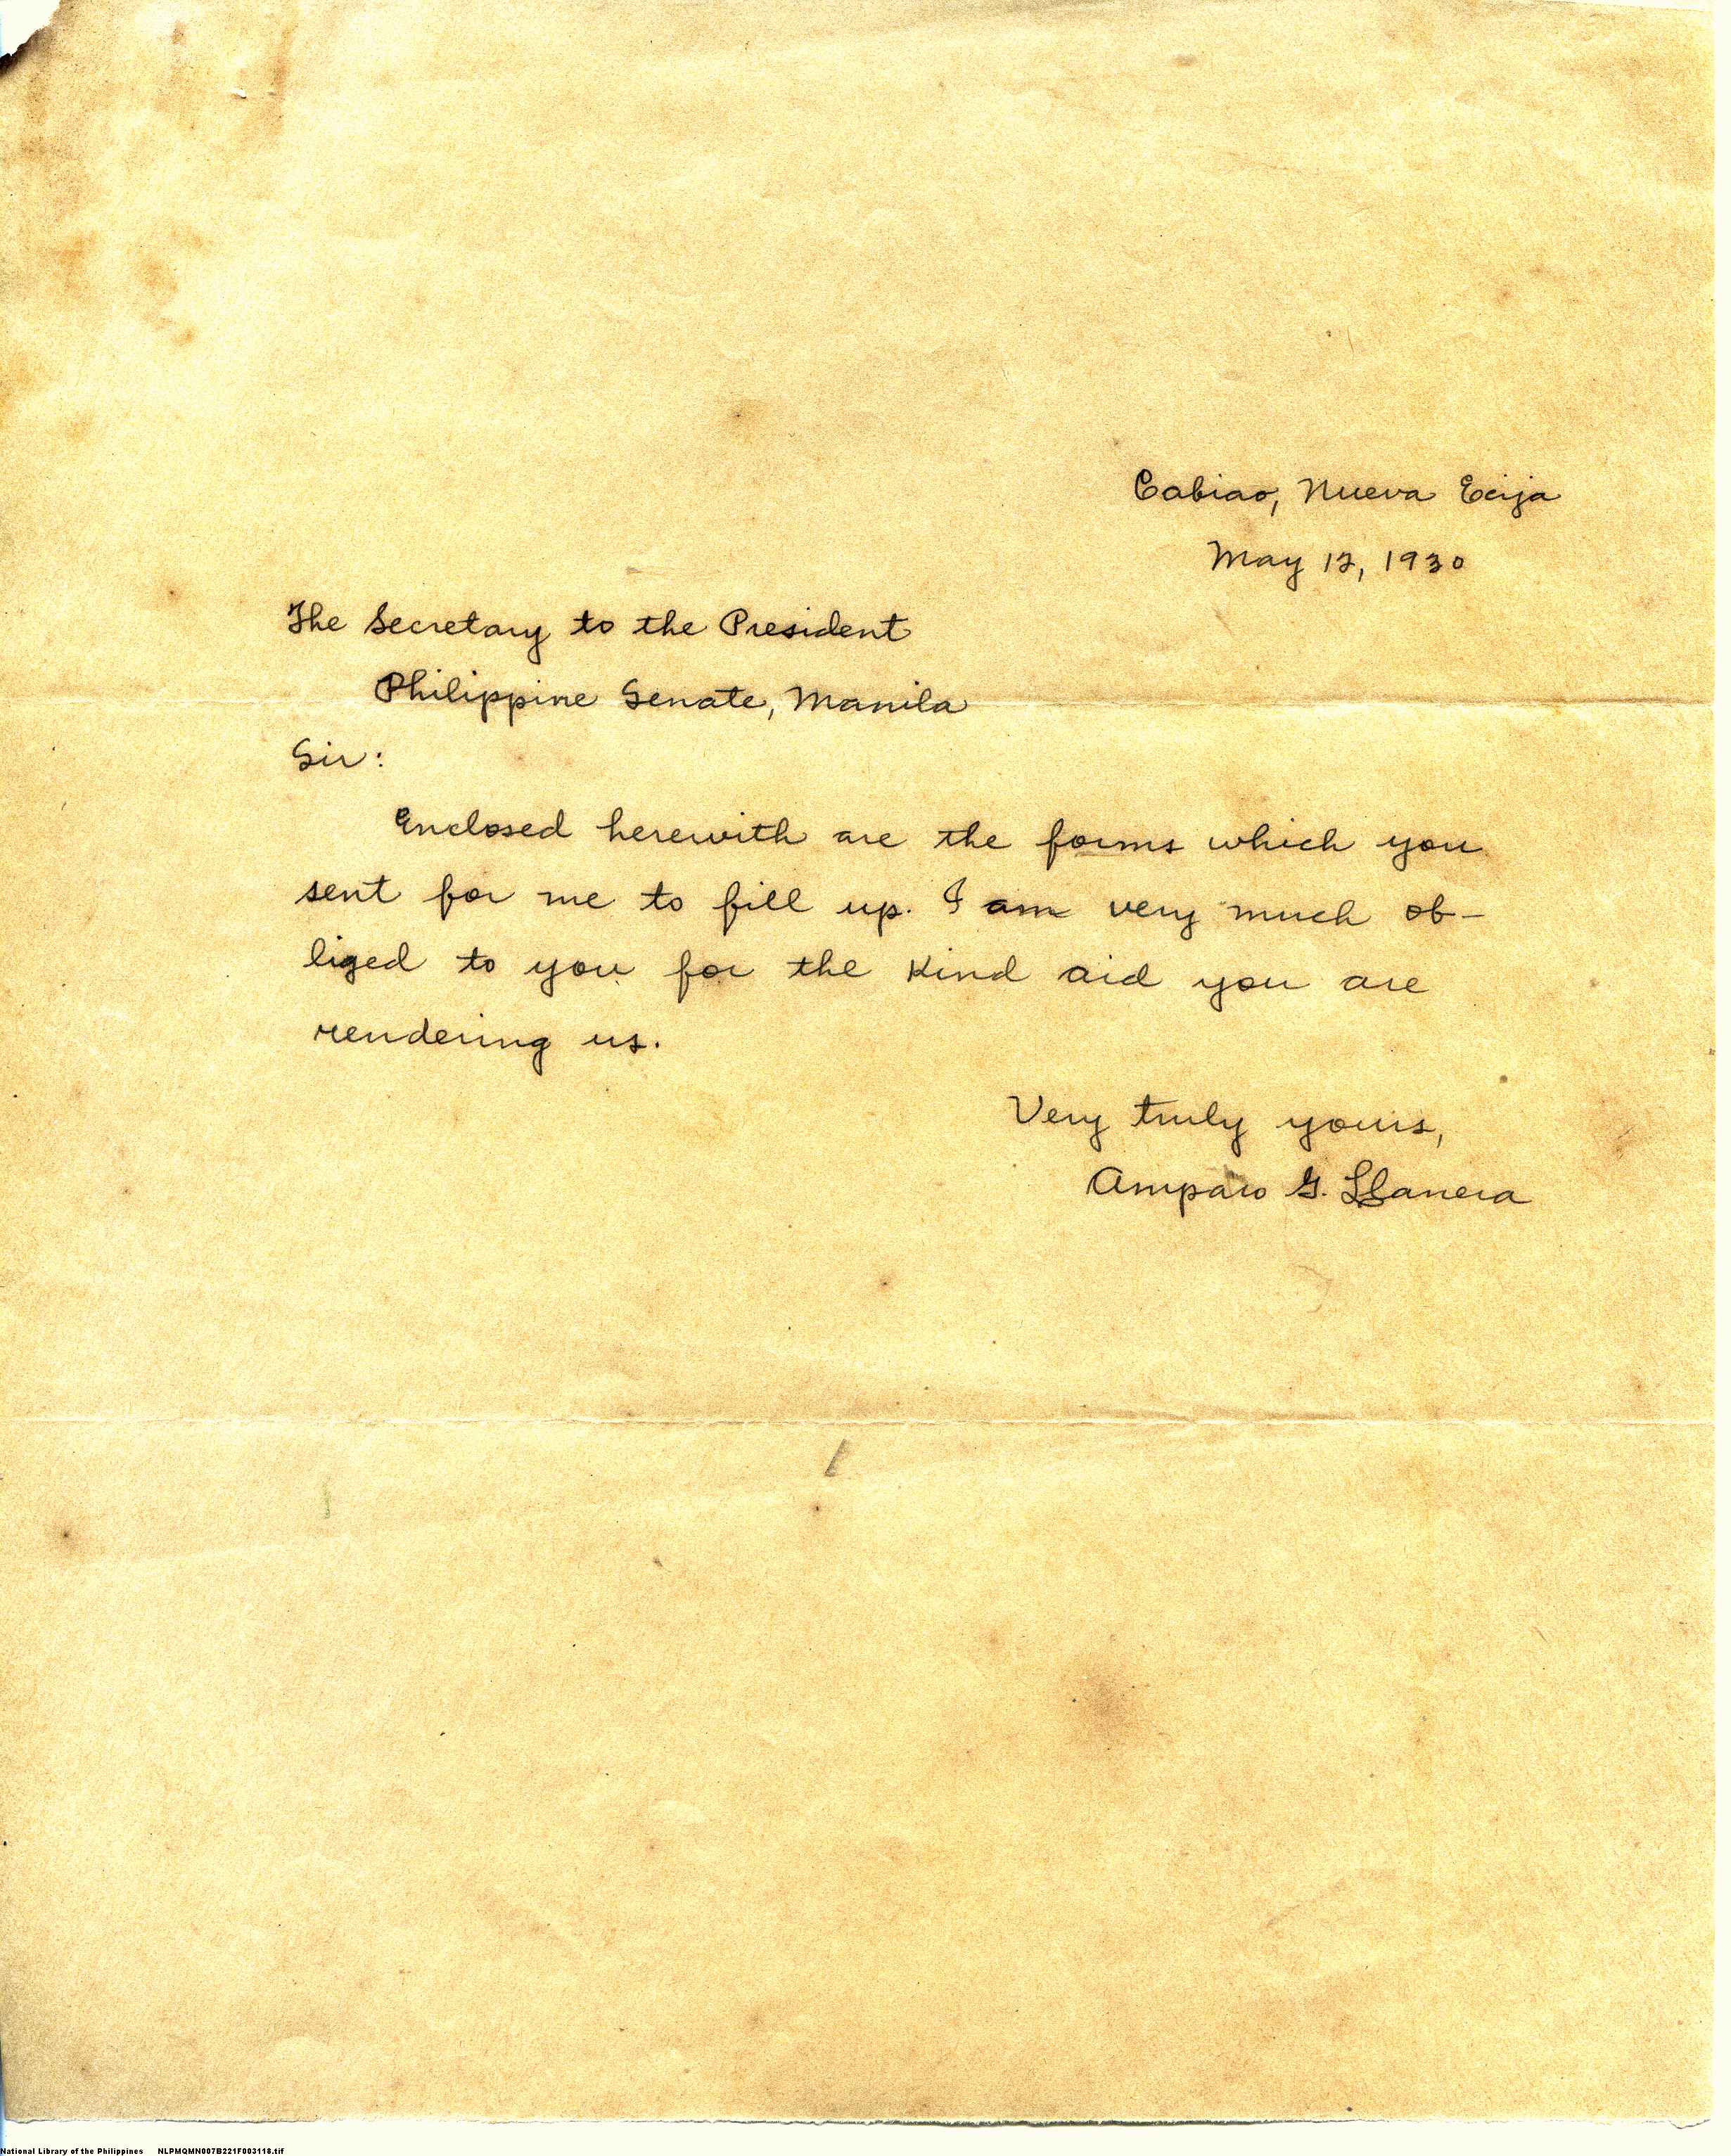 Cabiao, Nueva Ecija
May 12, 1930
The Secretary to the President
Philippine Senate, Manila
Sir:
Enclosed herewith are the forms which you
sent for me to fill up. I am very much ob-
liged to you for the kind aid you are
rendering us.
Very truly yours,
Amparo G. Llanera
National Library of the Philippines NLPMQMN007B221F003118.tif